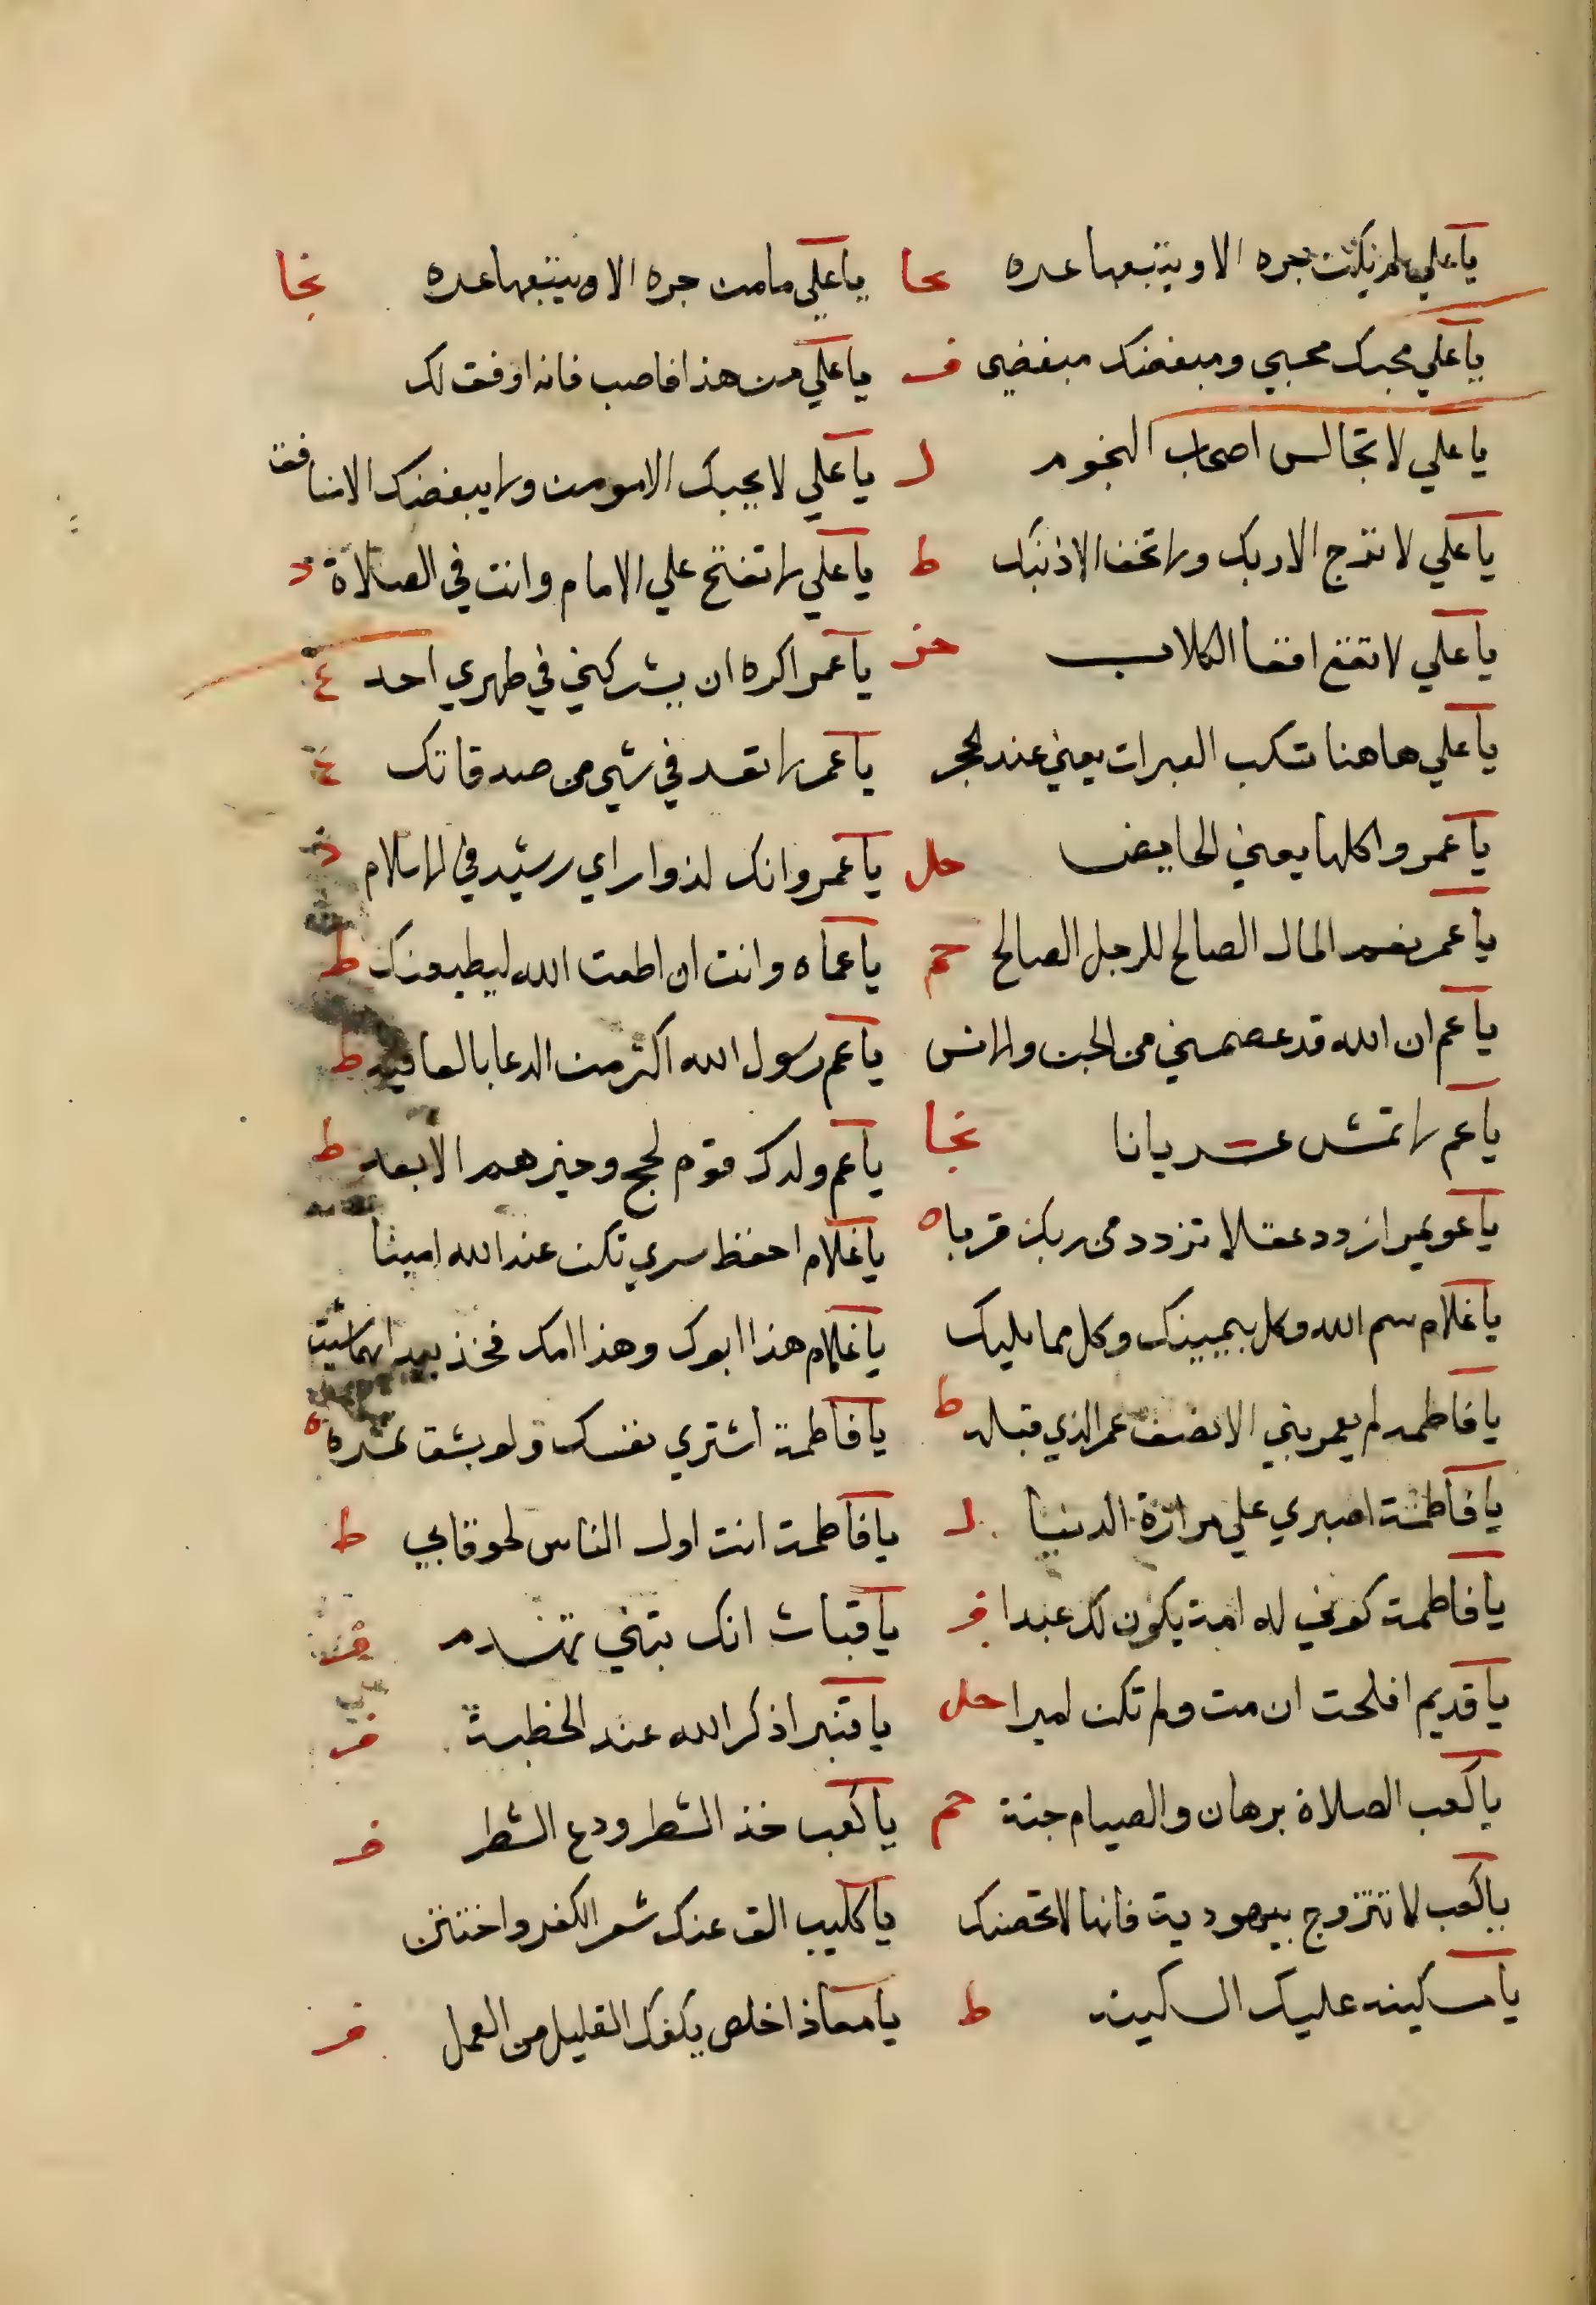 يا علي لم نكن حبره الا ويتبعها عبره عا يا علي ما من حبره الا ويتبعها عبره نجا
يا علي محبك محبي ومبغضك مبغضي فر يا علي من هذا فاصب فانه اوفق لك
يا علي لا تجالس اصحاب النجوم ل يا علي لا يحبك الا مومن ولا يبغضك الا منافق
يا علي لا ترج الا ربك ولا تخف الا ذنبك ط يا علي لا تفتح علي الامام وانت في الصلاة د
يا علي لا تقع اقعا الكلاب يا عمر اكره ان يشركني في طهري احد ع
يا علي هاهنا تسكب العبرات يعني عند الحجر يا عمر لا تعد في شي من صدقاتك ع
يا عمر واكلها يعني الحايض حل يا عمر وانك لذوا راي رشيد في الاسلام
يا عمر نعم المال الصالح للرجل الصالح حم يا عماه وانت ان اطعت الله ليطيعنك ط
يا عم ان الله قد عصمني من الجن والانس يا عم رسول الله اكثر من الدعا بالعافيه ط
يا عم لا تمش عريانا نجا يا عم ولدك قوم لحج وخيرهم الابعد ط
يا عويمر ازدد عقلا تزدد من ربك قربا ه يا غلام احفظ سري تكن عند الله امينا
يا غلام سم الله وكل بيمينك وكل مما يليك يا غلام هذا ابوك وهذا امك فخذ بيد ايهما شيت
يا فاطمه لم يعمر بني الا نصف عمر الذي قبله ط يا فاطمة اشتري نفسك ولو بشق تمره ه
يا فاطمة اصبري علي مرارة الدنيا ل يا فاطمة انت اول الناس لحوقا بي ط
يا فاطمة كوني له امة يكون لك عبدا فر يا قباث انك تبني تهدم
يا قديم افلحت ان مت ولم تكن اميرا حل يا قنبر اذكر الله عند الخطبة فر
يا كعب الصلاة برهان والصيام جنة حم يا كعب خذ الشطر ودع الشطر فر
يا كعب لا تتزوج بيهودية فانها لا تحصنك يا كليب الق عنك شعر الكفر واختتن
يا مسكينه عليك السكينه ط يا معاذ اخلص يكفك القليل من العمل فر